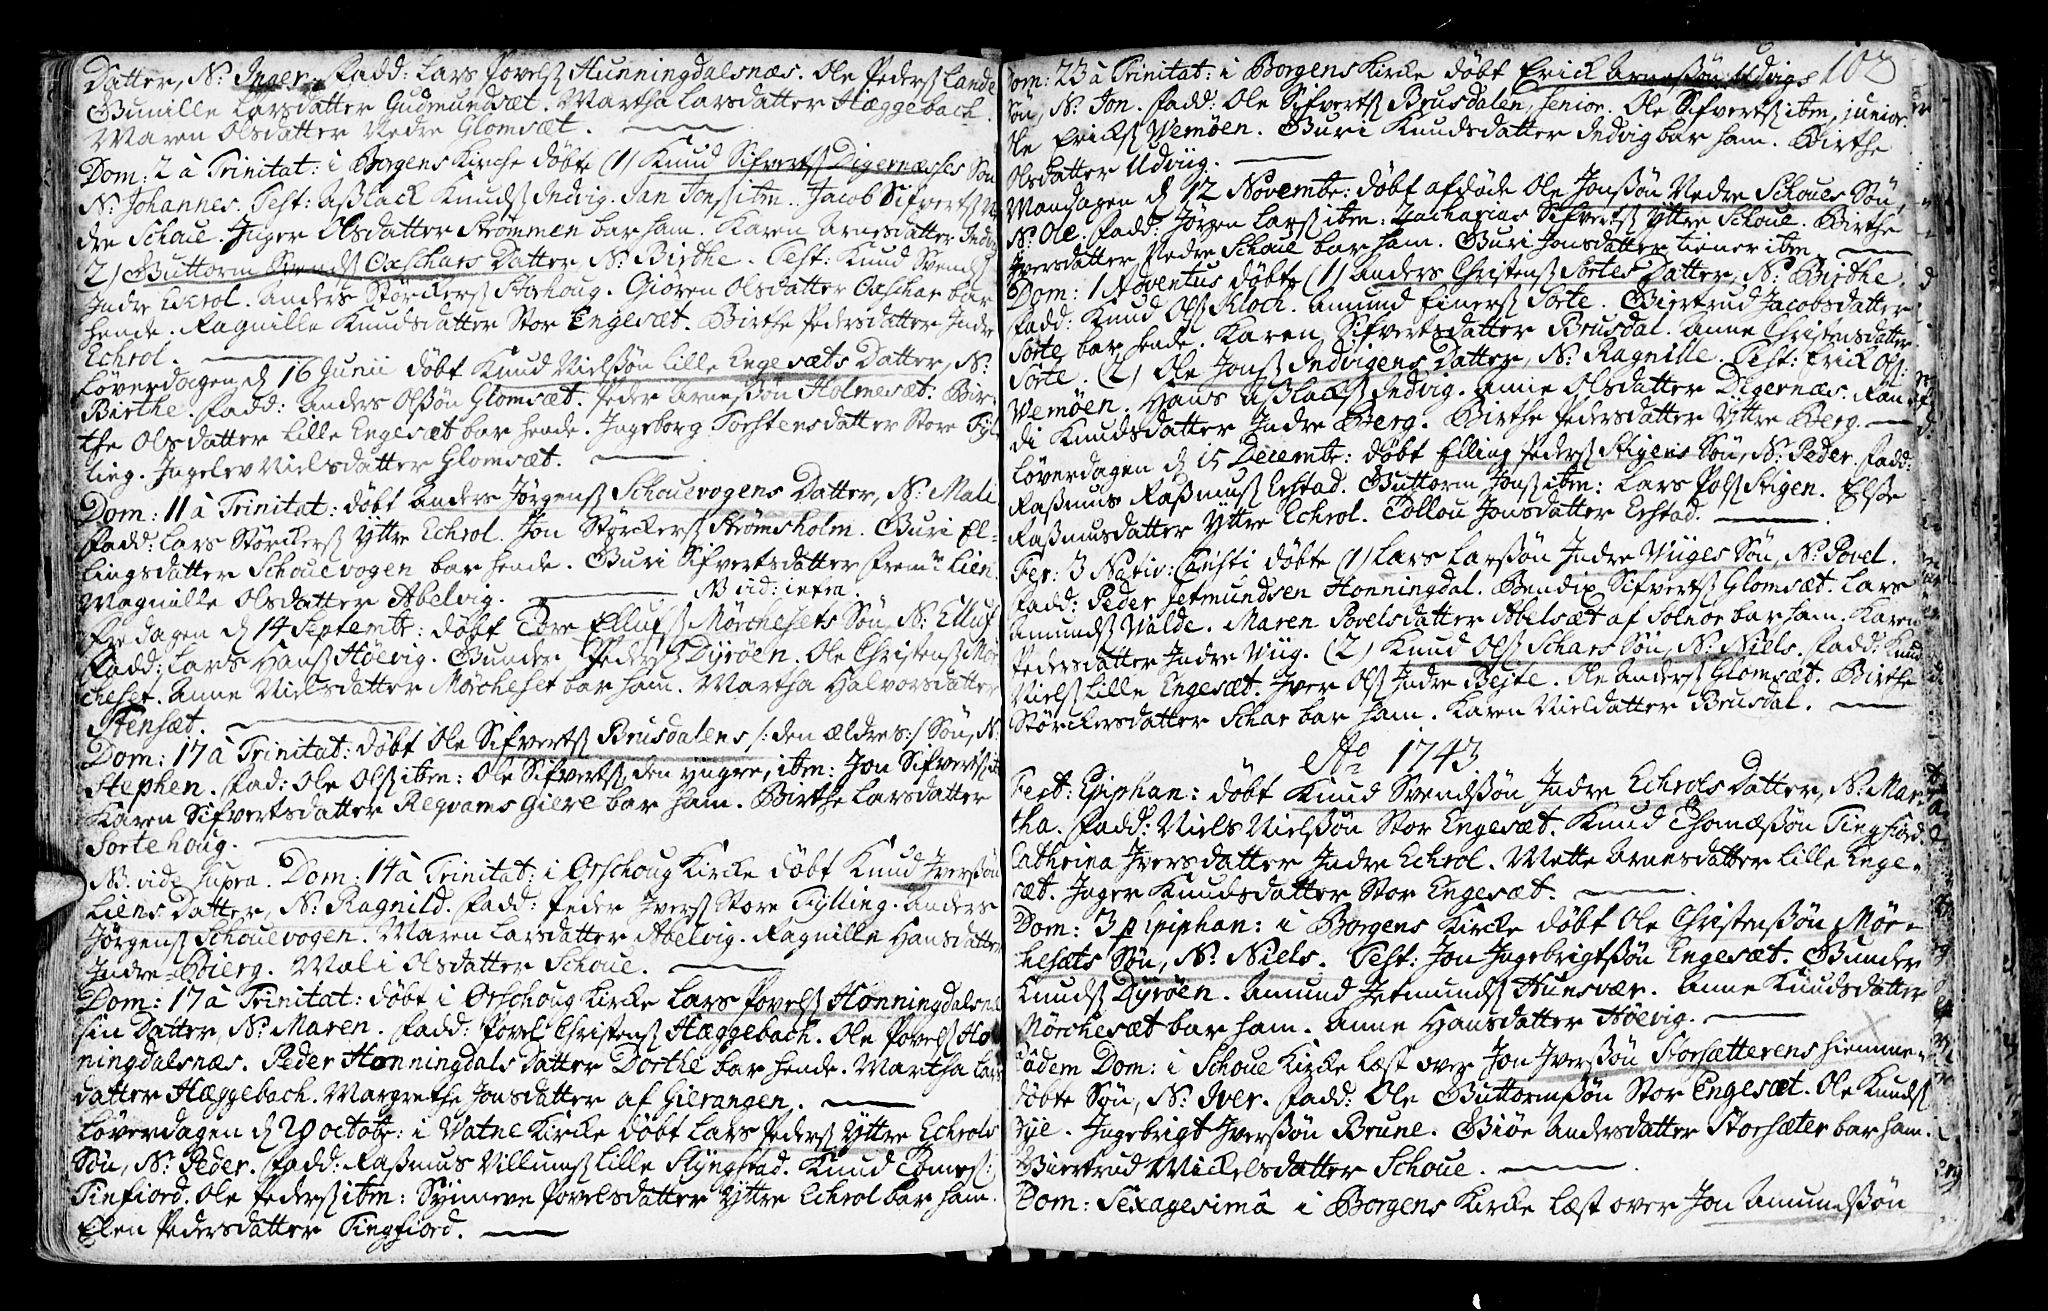 Datter, N: Inger. Fadd: Lars Povels Hunningdalsnæs. Ole Peders Lande
Gunille Larsdatter Gudmundsæt. Martha Larsdatter Hæggebach.
Maren Olsdatter Nedre Glomsæt.
Dom: 2 à Trinitat: i Borgens Kirche döbt (1) Knud Sifverts Digernæsses Sön
N: Johannes. Test: Aslack Knuds Indvig. Jan Jons ibm. Jacob Sifverts Ne
dre Schoue. Inger Olsdatter Strömmen bar ham. Karen Arnesdatter Indvig
2) Guttorm Svends Oxschars Datter, N: Birthe. Test: Knud Svends
Indre Echrol. Anders Störckers Storhoug. Giören Olsdatter Oxschar bar
hende. Ragnille Knudsdatter Stor Engesæt. Birthe Pedersdatter Indre
Echrol.
Löverdagen d 16 Junii döbt Knud Nielssön Lille Engesæts Datter, N:
Birthe. Fadd: Anders Olssön Glomsæt. Peder Arnessön Holmesæt. Bir-
the Olsdatter Lille Engesæt bar hende. Ingeborg Torstensdatter Store Fyl
ling. Ingelev Nielsdatter Glomsæt.
Dom: 11 à Trinitat: döbt Anders Jörgens Schouevogens Datter, N: Mali
Fadd: Lars Störckers Yttre Echrol. Jon Störckers Strömsholm. Guri El-
lingsdatter Schouevogen bar hende. Guri Sifvertsdatter Frem: Lien.
Magnille Olsdatter Abelvig. N vid: infra.
Fredagen d 14 Septembr: döbt Tore Ellufs Mörchesets Sön, N: Elluf
Fadd: Lars Hans Höevig. Gunder Peders Dyröen. Ole Christens Mör
cheset. Anne Nielsdatter Mörcheset bar ham. Martha Halvorsdatter
Stensæt.
Dom: 17 à Trinitat: döbt Ole Sifverts Brusdalens /: den ældres :/ Sön, N:
Stephen. Fad: Ole Ols ibm: Ole Sifverts, den yngre, ibm: Jon Sifverts ib
Karen Sifvertsdatter Reqvams Giere bar ham. Birthe Larsdatter
Sortehoug.
N. vide supra. Dom: 14 à Trinitat: i Orschoug Kirke döbt Knud Iverssön
Liens Datter, N: Ragnild. Fadd: Peder Ivers Store Fylling. Anders
Jörgens Schouevogen. Maren Larsdatter Abelvig. Ragnille Hansdatter
Indre Bierg. Mali Olsdatter Schoue.
Dom: 17 à Trinitat: döbt i Orschoug Kirke Lars Povels Honningdalsnæs
sin Datter, N: Maren. Fadd: Povel Christens Hæggebach. Ole Povels Hon
ningdalsnæs. Peder Honningdals Datter Dorthe bar hende. Martha Lars
datter Hæggebach. Margrethe Jonsdatter af Gierangen.
Löverdagen d 20 octobr: i Vatne Kirke döbt Lars Peders Yttre Echrols
Sön, N: Peder. Fadd: Rasmus Villums Lille Slyngstad. Knud Tomes:
Tinfiord. Ole Peders ibm: Synneve Povelsdatter Yttre Echrol bar ham.
Elen Pedersdatter Tingfiord.
103
Dom: 23 à Trinitat: i Borgens Kirke döbt Erick Arnessön Udvigs
Sön, N: Jon. Fadd: Ole Sifverts Brusdalen, senior. Ole Sifverts ibm, junior
Ole Ericks Vemöen. Guri Knudsdatter Indvig bar ham. Birthe
Olsdatter Udviig.
Mandagen d 12 Novembr: döbt afdöde Ole Jonssön Nedre Schoues Sön,
N: Ole. Fadd: Jörgen Lars ibm: Zacharias Sifverts Yttre Schoue. Birthe
Iversdatter Nedre Schoue bar ham. Guri Jonsdatter tiener ibm
Dom: 1 Adventus döbt (1) Anders Christens Sortes Datter, N: Birthe.
Fadd: Knud Ols Kloch. Amund Einers Sorte. Giertrud Jacobsdatter
Sorte bar hende. Karen Sifvertsdatter Brusdal. Anne Christensdatter
Sorte. (2) Ole Jons Indvigens Datter, N: Ragnille. Test: Erick Ols:
Vemöen. Hans Aslacks Indvig. Anne Olsdatter Digernæs. Ran
di Knudsdatter Indre Berg. Birthe Pedersdatter Yttre Berg.
Löverdagen d 15 Decembr: döbt Elling Peders Stigens Sön, N: Peder. Fadd:
Rasmus Rasmus Erstad. Guttorm Jons ibm: Lars Pols Stigen. Else
Rasmusdatter Yttre Echrol. Tollou Jonsdatter Erstad.
Fer: 3 Nativ: Christi döbte (1) Lars Larssön Indre Viiges Sön, N: Povel.
Fadd: Peder Jetmundsen Honningdal. Bendix Sifverts Glomsæt. Lars
Amunds Valde. Maren Povelsdatter Abelsæt af Solnor bar ham. Karen
Pedersdatter Indre Viig. (2) Knud Ols Schars Sön, N: Niels. Fadd: Knud
Niels Lille Engesæt. Iver Ols Indre Beite. Ole Anders Glomsæt. Birthe
Störckersdatter Schar bar ham. Karen Nieldatter Brusdal.
Ao 1743
Fest: Epiphan: döbt Knud Svendssön Indre Echrols Datter, N: Mar-
tha. Fadd: Niels Nielssön Stor Engesæt. Knud Thomæssön Tingfiord.
Cathrina Iversdatter Indre Echrol. Mette Arnesdatter Lille Enge-
sæt. Inger Knudsdatter Stor Engesæt.
Dom: 3 p Epiphan: i Borgens Kirke döbt Ole Christenssön Mör-
chesæts Sön, N: Niels. Test: Jon Ingebrigtssön Engesæt. Gunder
Knuds Dyröen. Amund Jetmunds Hunsvær. Anne Knudsdatter
Mörchesæt bar ham. Anne Hansdatter Höevig.
Eâdem Dom: i Schoue Kirke læst over Jon Iverssön Storsætterens hiemme-
döbte Sön, N: Iver. Fadd: Ole Guttormssön Stor Engesæt. Ole Knuds
Rye. Ingebrigt Iverssön Brune. Giöe Andersdatter Storsæter bar ham.
Giertrud Mickelsdatter Schoue.
Dom: Sexagesimâ i Borgens Kirke læst over Jon Amundssön